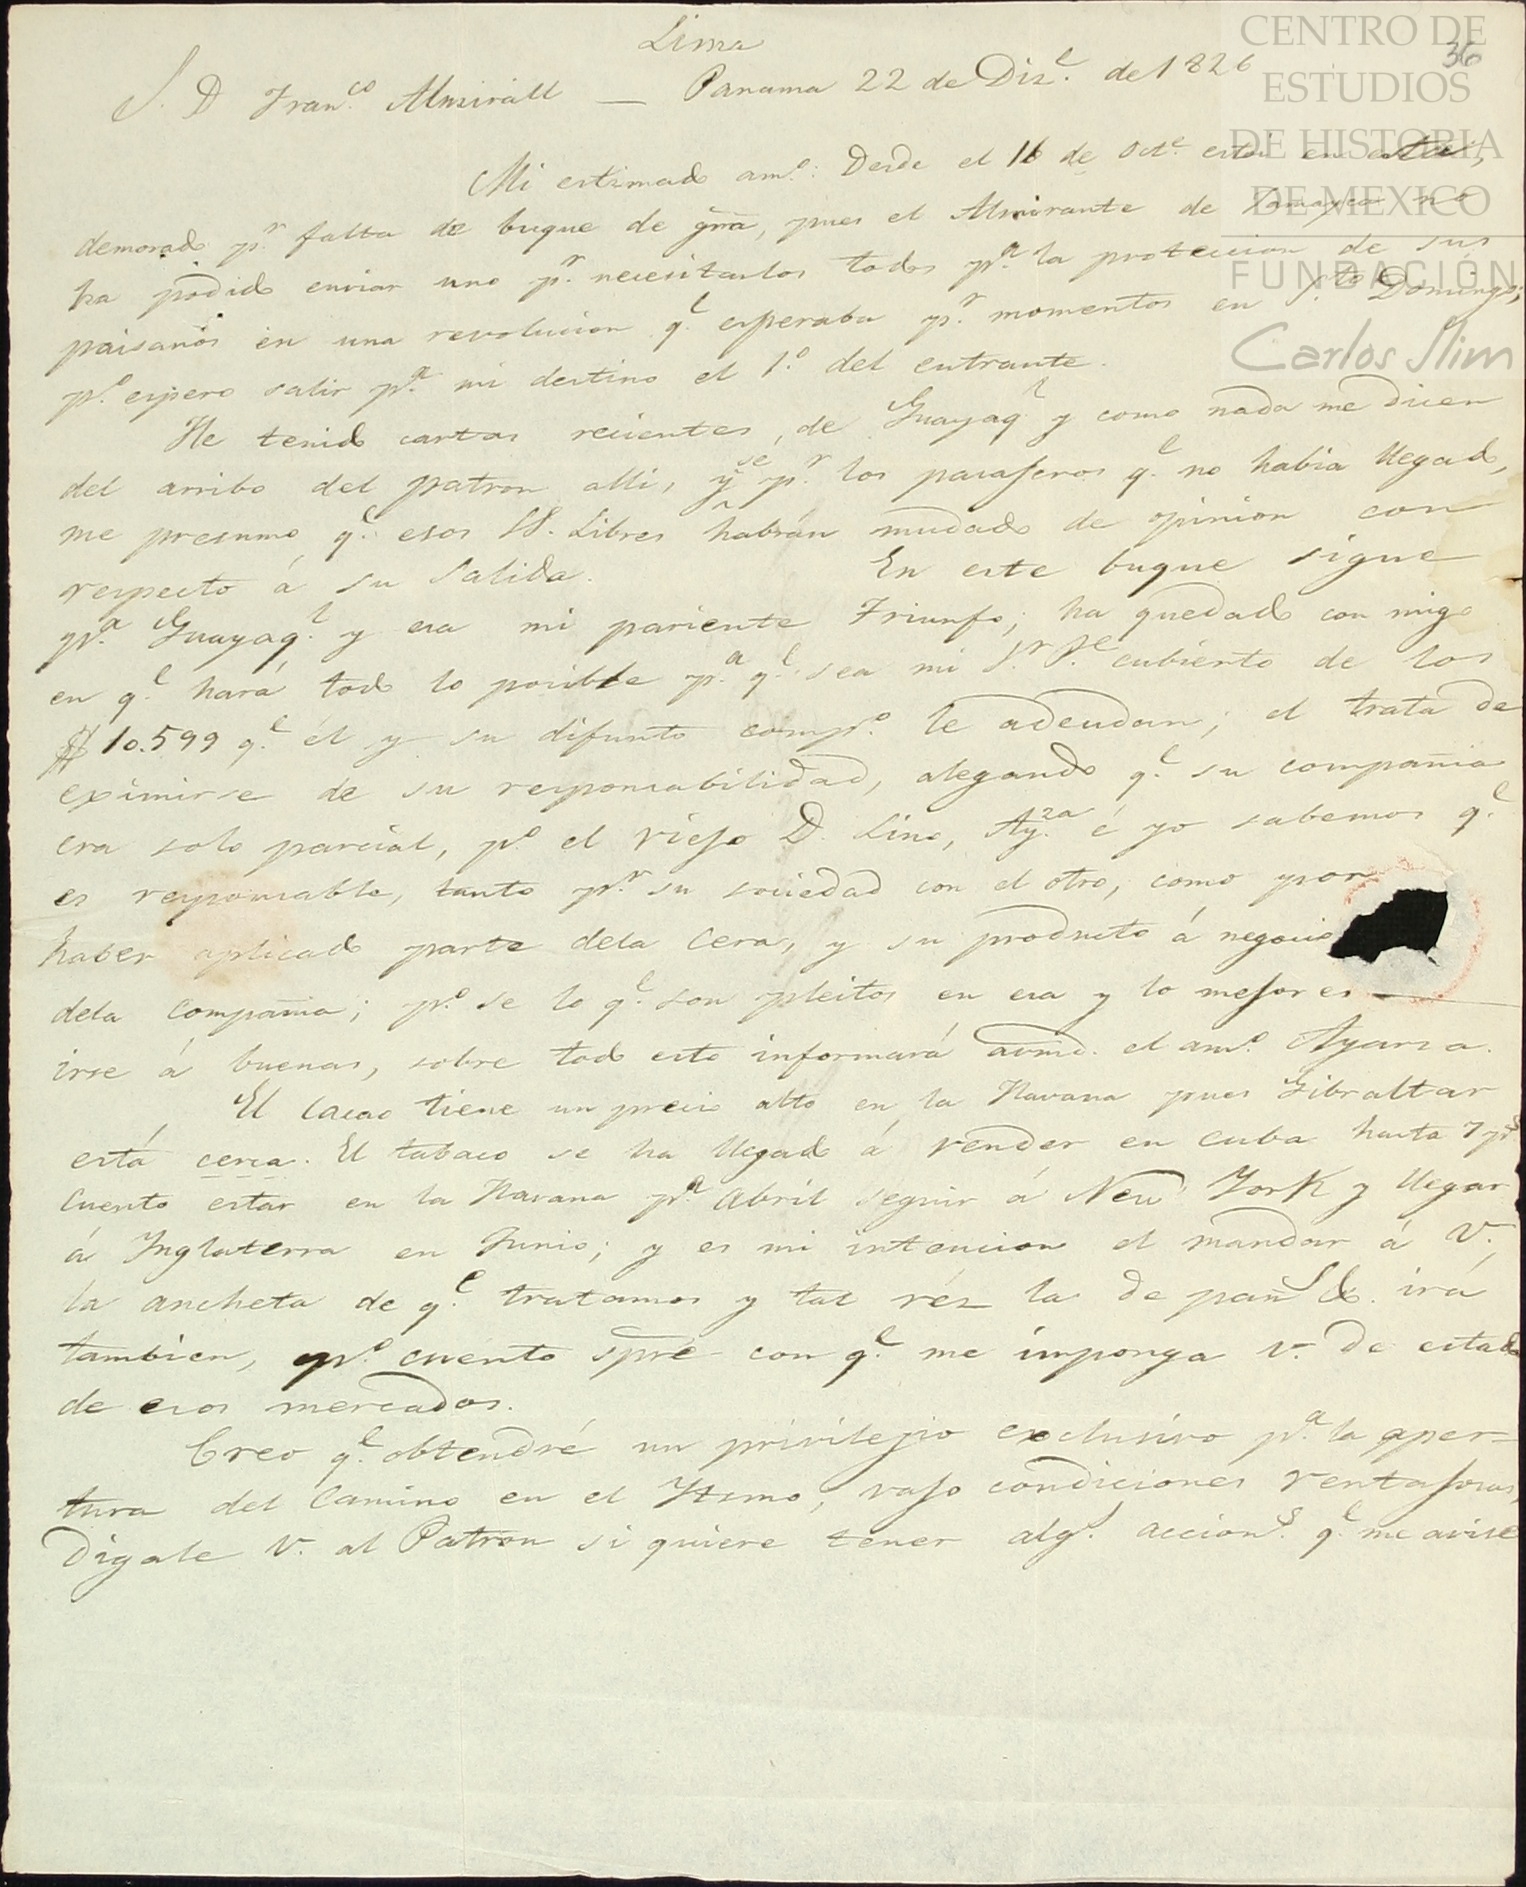 Lima
S. D Fran.co Almirall — Panama 22 de Diz.e de 1826
36
Mi estimado am.o: Desde el 16 de Oct.e estoi en esta,
demorado p.r falta de buque de gȓra, pues el Almirante de Jamayca no
ha podido enviar uno p.r necesitarlos todos p.a la proteccion de sus
paisanos en una revolucion q.e esperaba p.r momentos en S.to Domingo;
p.o espero salir p.a mi destino el 1.o del entrante.
He tenido cartas recientes, de Guayaq.l y como nada me dicen
del arribo del patron alli, y se p.r los pasajeros q.e no habia llegado,
me presumo q.e esos SS. Libres habrán mudado de opinion con
respecto á su salida. En este buque sigue
p.a Guayaq.l y esa mi pariente Triunfo; ha quedado con migo
en q.e hará todo lo posible p.a q.e sea mi S.r P.e cubierto de los
$ 10.599 q.e él y su difunto comp.o le adeudan; el trata de
eximirse de su responsabilidad, alegando q.e su compañia
era solo parcial, p.o el viejo D. Lino, Ay.za é yo sabemos q.e
es responsable, tanto p.r su sociedad con el otro, como por
haber aplicado parte dela Cera, y su producto á negocio
dela Compañia; p.o se lo q.e son pleitos en esa y lo mejor es
irse á buenas, sobre todo esto informará avmd. el am.o Ayarza.
El Cacao tiene un precio alto en la Havana pues Gibraltar
está cerca. El tabaco se ha llegado á vender en Cuba hasta 7 p.s
Cuento estar en la Havana p.a Abril seguir á New York y llegar
á Inglaterra en Junio; y es mi intencion el mandar á V.
la ancheta de q.e tratamos y tal véz la de pañ.s &. irá
tambien, p.o cuento spre con q.e me imponga V. de estado
de esos mercados.
Creo q.e obtendré un privilejio exclusivo p.a la aper-
tura del Camino en el Ytsmo, vajo condiciones ventajosas,
digale V. al Patron si quiere tener alg.s accion.s q.e me avise
CENTRO DE
ESTUDIOS
DE HISTORIA
DE MEXICO
FUNDACIÓN
Carlos Slim